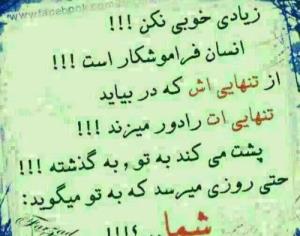 www.facebook.com
زیادی خوبی نکن !!!
انسان فراموشکار است !!!
از تنهایی اش که در بیاید
تنهایی ات رادور میزند !!!
پشت می کند به تو , به گذشته !!!
حتی روزی میرسد که به تو میگوید:
شما.. ؟!!!
Farzad